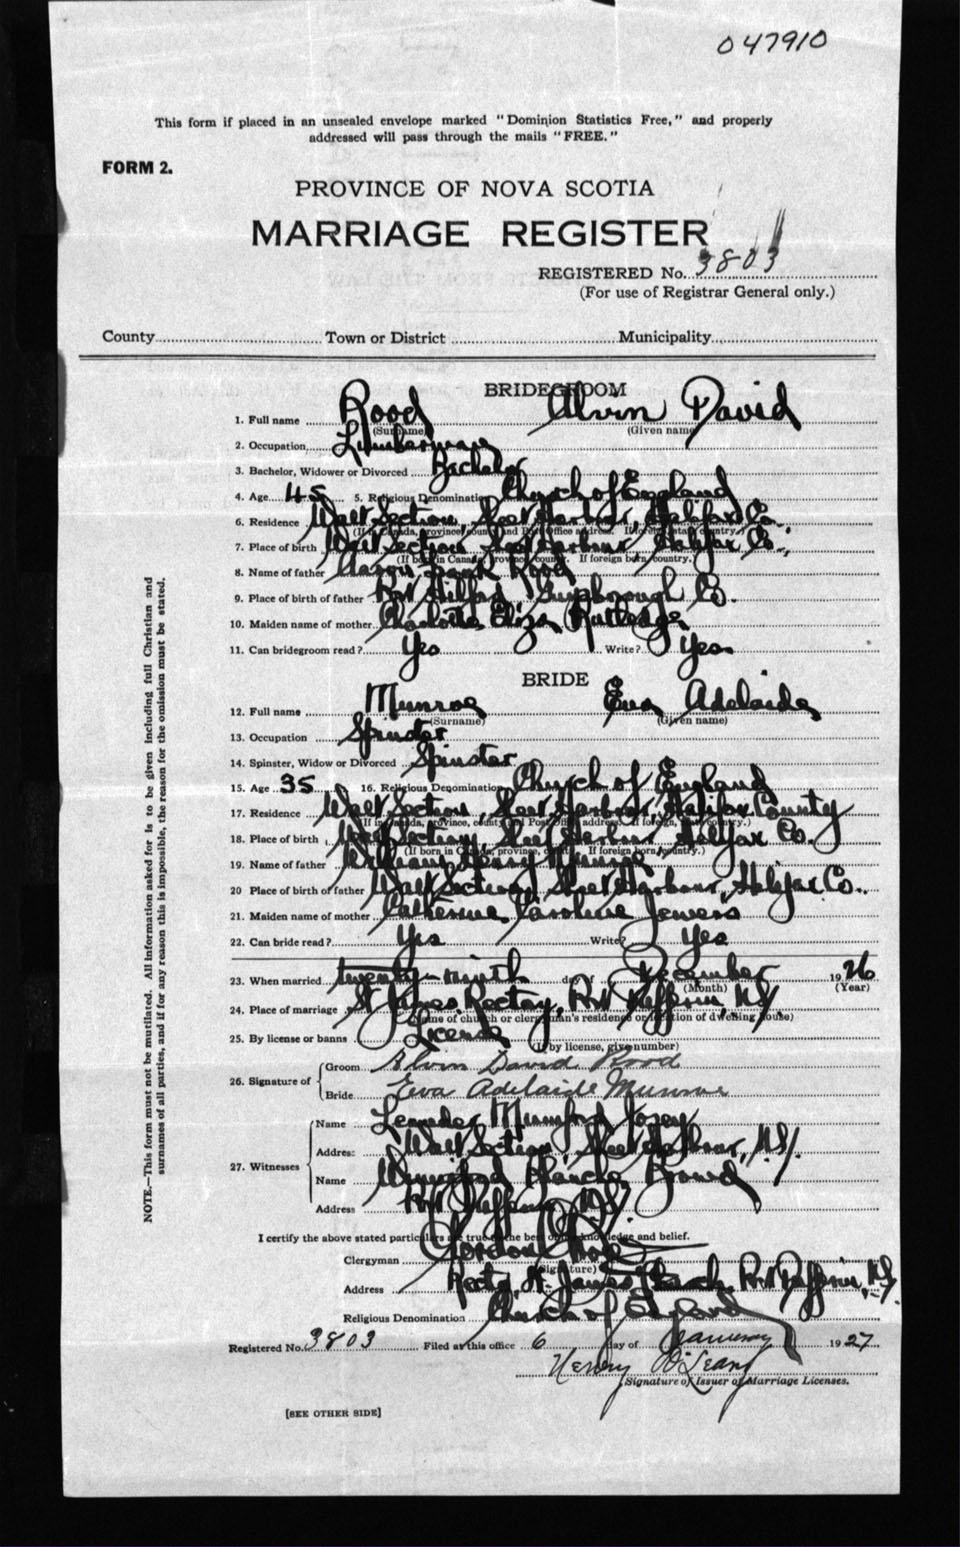 047910
This form if placed in an unsealed envelope marked "Dominion Statistics Free," and properly
addressed will pass through the mails "FREE."
FORM 2.
PROVINCE OF NOVA SCOTIA
MARRIAGE REGISTER
REGISTERED No. 3803
(For use of Registrar General only.)
County Town or District Municipality
BRIDEGROOM
1. Full name Rood Alvin David
(Surname) (Given name)
2. Occupation Lumberman
3. Bachelor, Widower or Divorced Bachelor
4. Age 45 5. Religious Denomination Church of England
6. Residence Watt Section, Sheet Harbour, Halifax Co.
(If in Canada, province, county and Post Office address. If foreign, state country.)
7. Place of birth Watt Section Sheet Harbour Halifax Co.
(If born in Canada, province, county. If foreign born, country.)
8. Name of father Aaron Frank Rood
9. Place of birth of father Port Hilford Guysborough Co.
10. Maiden name of mother Charlotte Eliza Rutledge
11. Can bridegroom read? Yes Write? Yes
BRIDE
12. Full name Munroe Eva Adelaide
(Surname) (Given name)
13. Occupation Spinster
14. Spinster, Widow or Divorced Spinster
15. Age 35 16. Religious Denomination Church of England
17. Residence Watt Section, Sheet Harbour, Halifax County
(If in Canada, province, county and Post Office address. If foreign, state country.)
18. Place of birth Watt Section, Sheet Harbour Halifax Co.
(If born in Canada, province, county. If foreign born, country.)
19. Name of father William Henry Munroe
20 Place of birth of father Watt Section, Sheet Harbour, Halifax Co.
21. Maiden name of mother Catherine Caroline Jewers
22. Can bride read? Yes Write? Yes
23. When married twenty-ninth day of December 1926
(Month) (Year)
24. Place of marriage St James Rectory, Port Dufferin, N.S.
(Name of church or clergyman's residence or location of dwelling house)
25. By license or banns License
(If by license, give number)
26. Signature of Groom Alvin David Rood
Bride Eva Adelaide Munroe
27. Witnesses Name Leander Mumford
Address Watt Section, Sheet Harbour, N.S.
Name Winnifred Blanche
Address Port Dufferin N.S.
I certify the above stated particulars are true to the best of my knowledge and belief.
Clergyman Gordon
(Signature)
Address Rector St. James Church, Port Dufferin, N.S.
Religious Denomination Church of England
Registered No. 3803 Filed at this office 6 day of January 1927
Henry
Signature of Issuer of Marriage Licenses.
[SEE OTHER SIDE]
NOTE.—This form must not be mutilated. All information asked for is to be given including full Christian and
surnames of all parties, and if for any reason this is impossible, the reason for the omission must be stated.